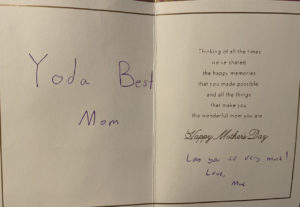 Yoda Best
Mom
Thinking of all the times
we've shared,
the happy memories
that you made possible,
and all the things
that make you
the wonderful mom you are
Happy Mother's Day
Love you so very much!
Love,